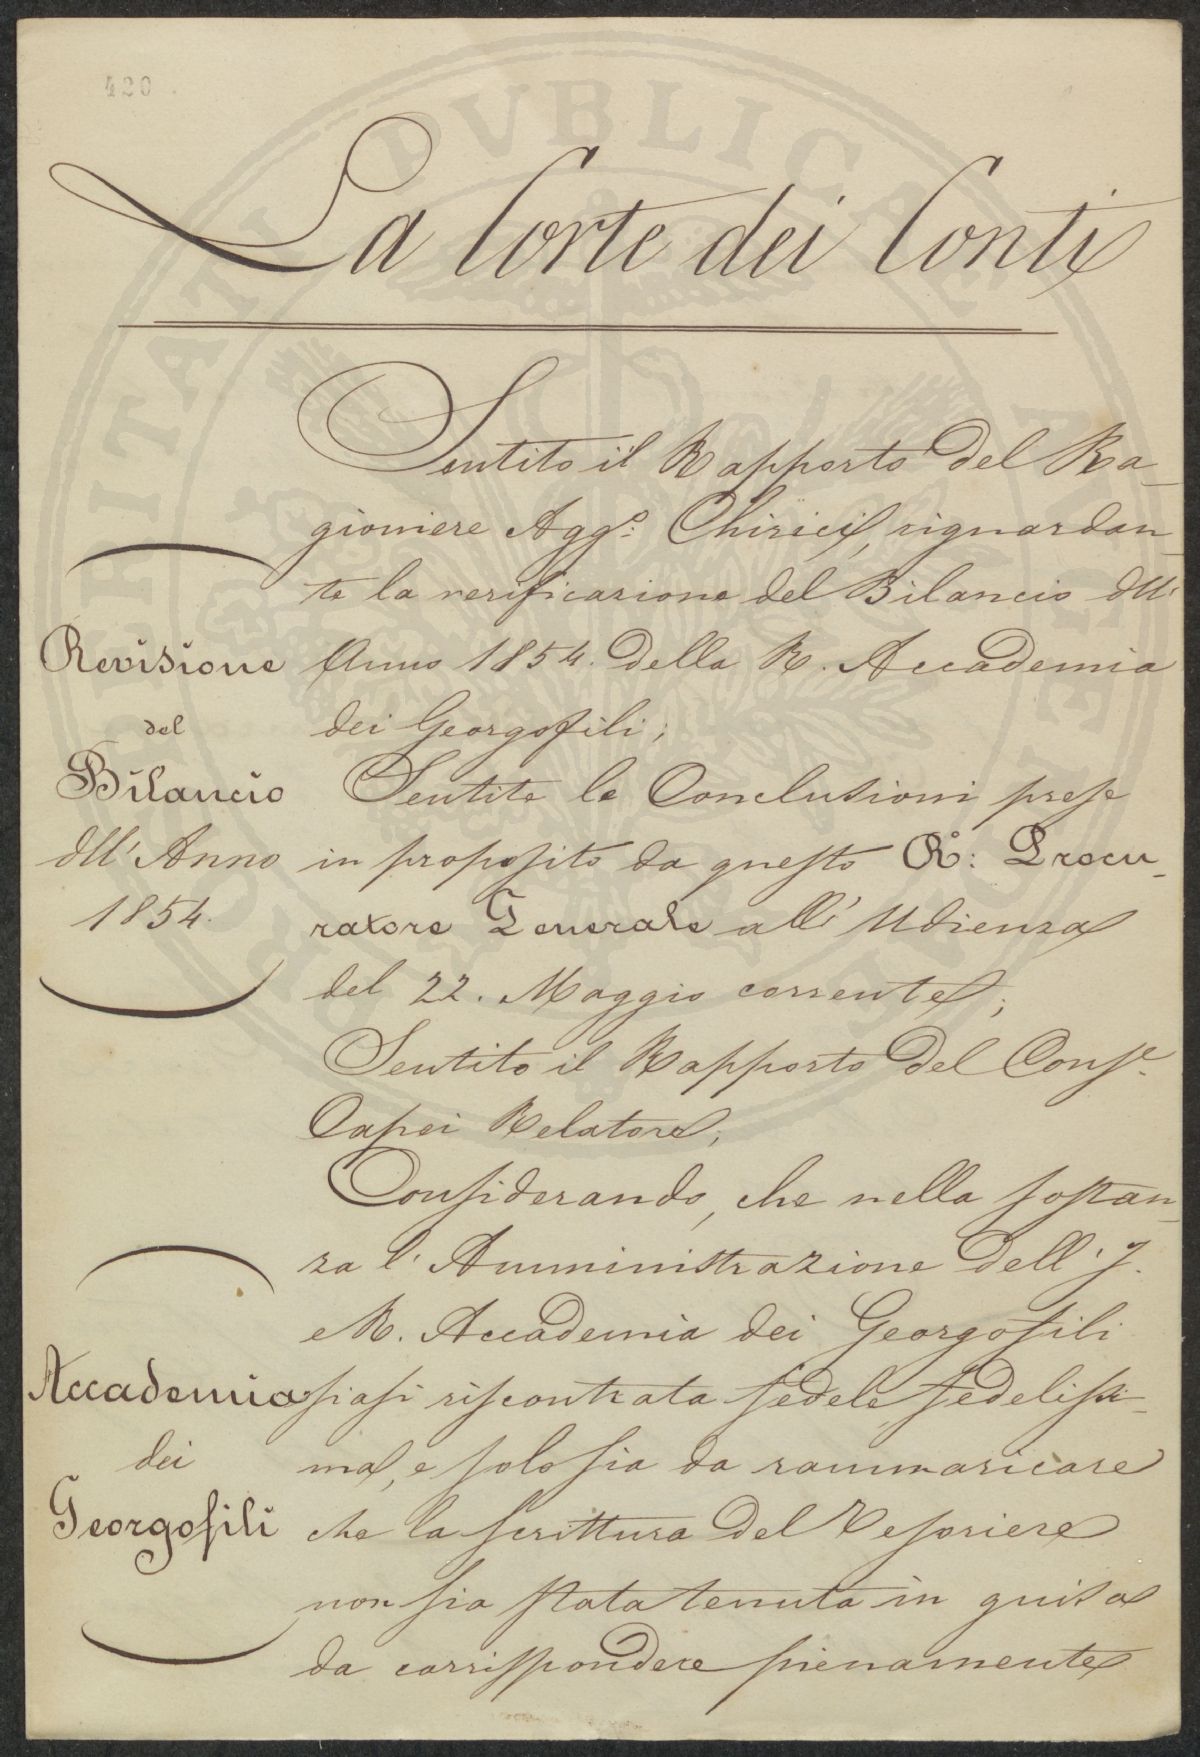 420
La Corte dei Conti
Sentito il Rapporto del Ra-
gioniere Agg.º Chirici, riguardan-
te la verificazione del Bilancio dell'
Anno 1854. della R. Accademia
dei Georgofili;
Sentite le Conclusioni prese
in proposito da questo R.º: Procu-
ratore Generale all'Udienza
del 22. Maggio corrente;
Sentito il Rapporto del Cons.e
Capei Relatore;
Considerando, che nella sostan-
za l'Amministrazione dell'J.
e R. Accademia dei Georgofili
siasi riscontrata fedele, fedelissi-
ma, e solo sia da rammaricare
che la scrittura del Tesoriere
non sia stata tenuta in guisa
da corrispondere pienamente
Revisione
del
Bilancio
dell'Anno
1854.
Accademia
dei
Georgofili
PROSPERITATI PVBLICAE AVGENDAE